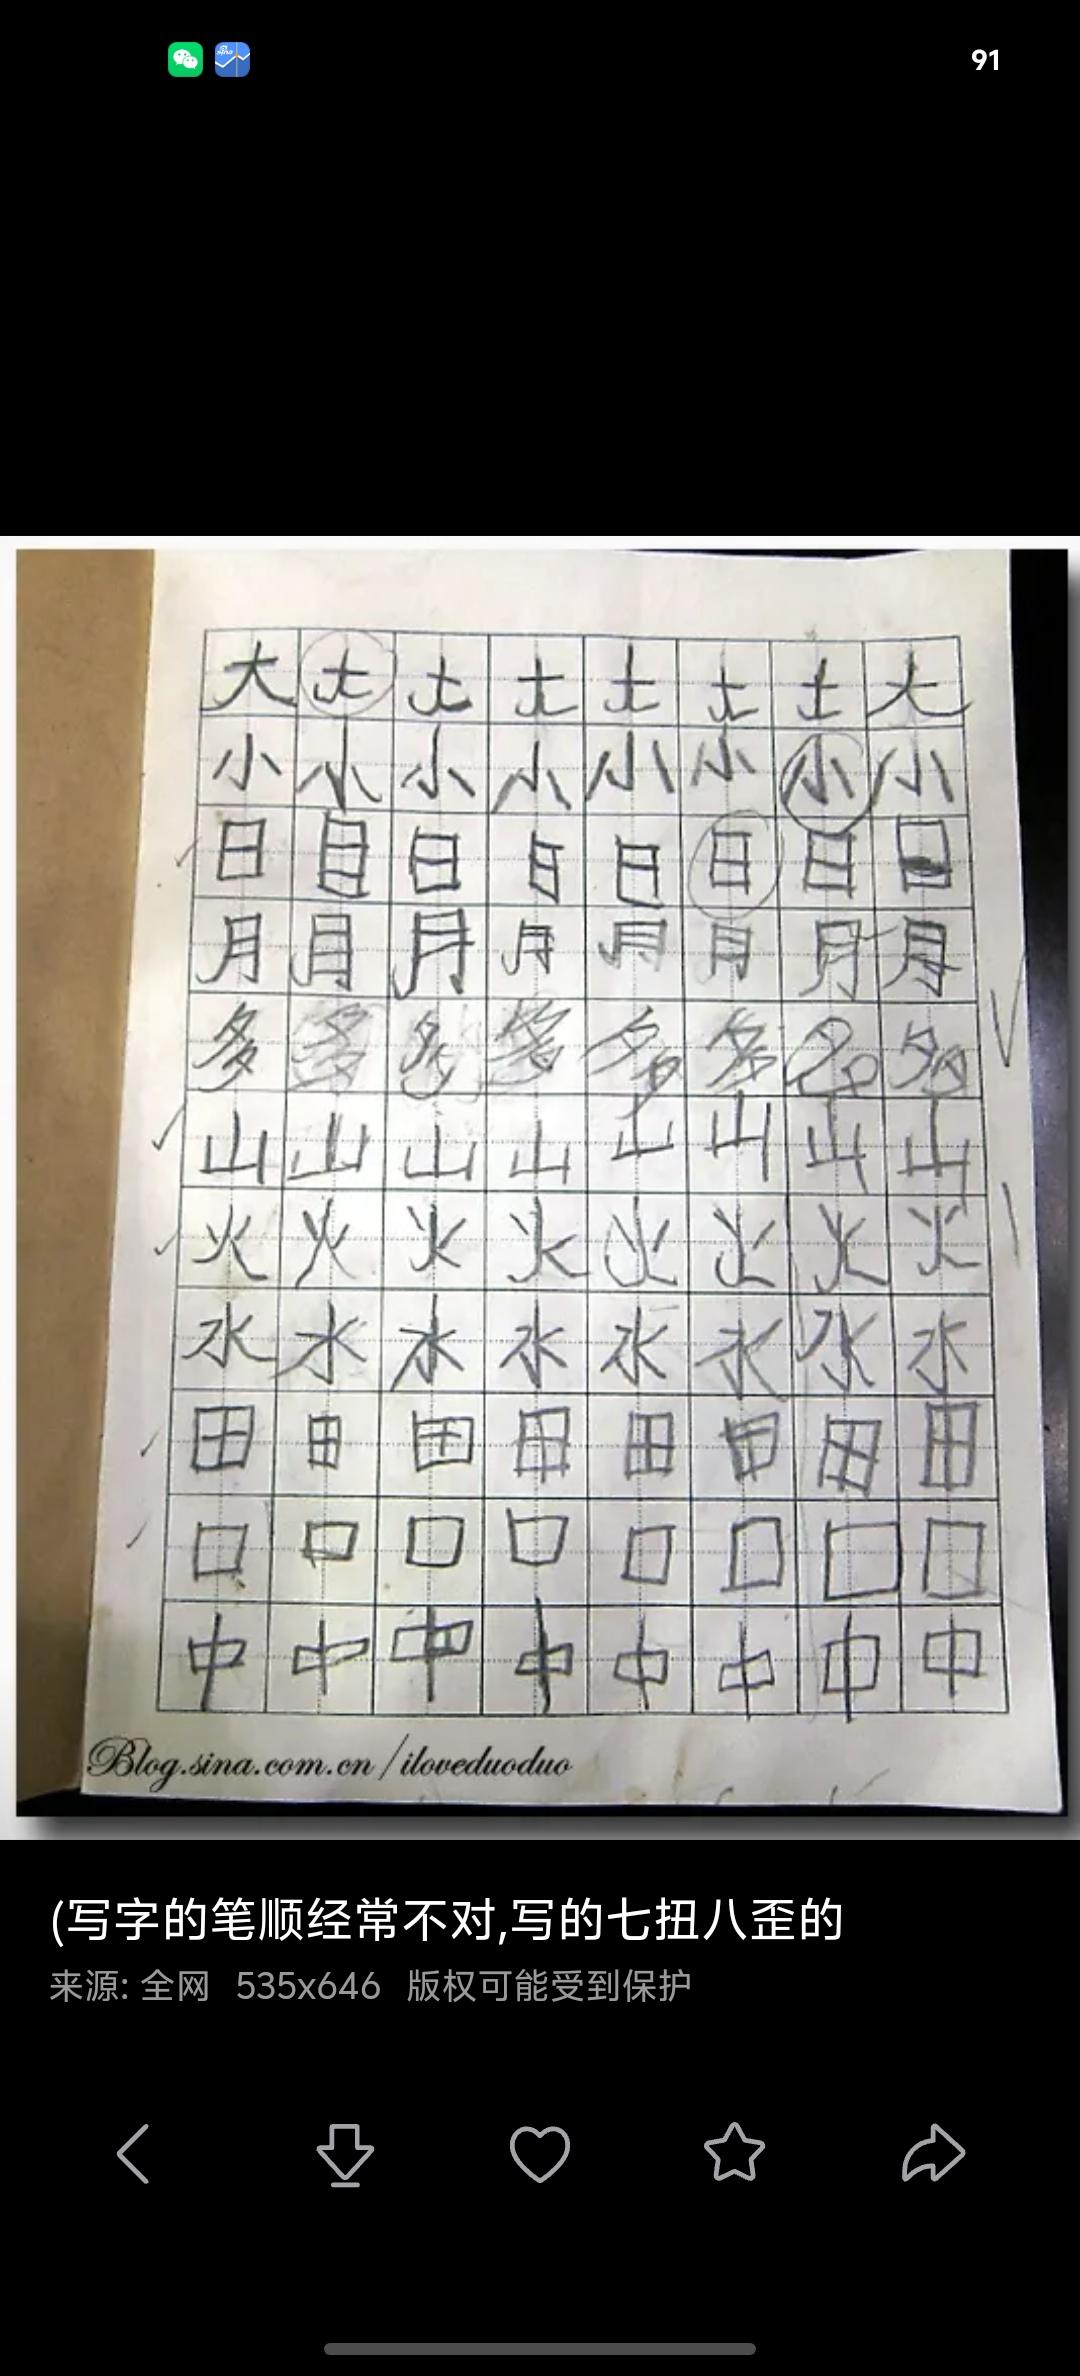 91
大 土 土 土 土 土 土 大
小 小 小 小 小 小 小 小
日 目 日 日 日 日 日 日
月 月 月 月 月 月 月 月
多 多 多 多 多 多
山 山 山 山 山 山 山 山
火 火 火 火 火 火 火 火
水 水 水 水 水 水 水 水
田 田 田 田 田 田 田 田
口 口 口 口 口 口 口 口
中 中 中 中 中 中 中 中
Blog.sina.com.cn/iloveduoduo
(写字的笔顺经常不对,写的七扭八歪的
来源: 全网 535x646 版权可能受到保护